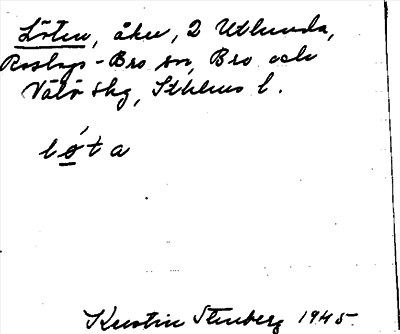 Löten, åker, 2 Utlunda,
Roslags-Bro sn, Bro och
Vätö skg, Sthlms l.
lǿta
Kerstin Stenberg 1945.